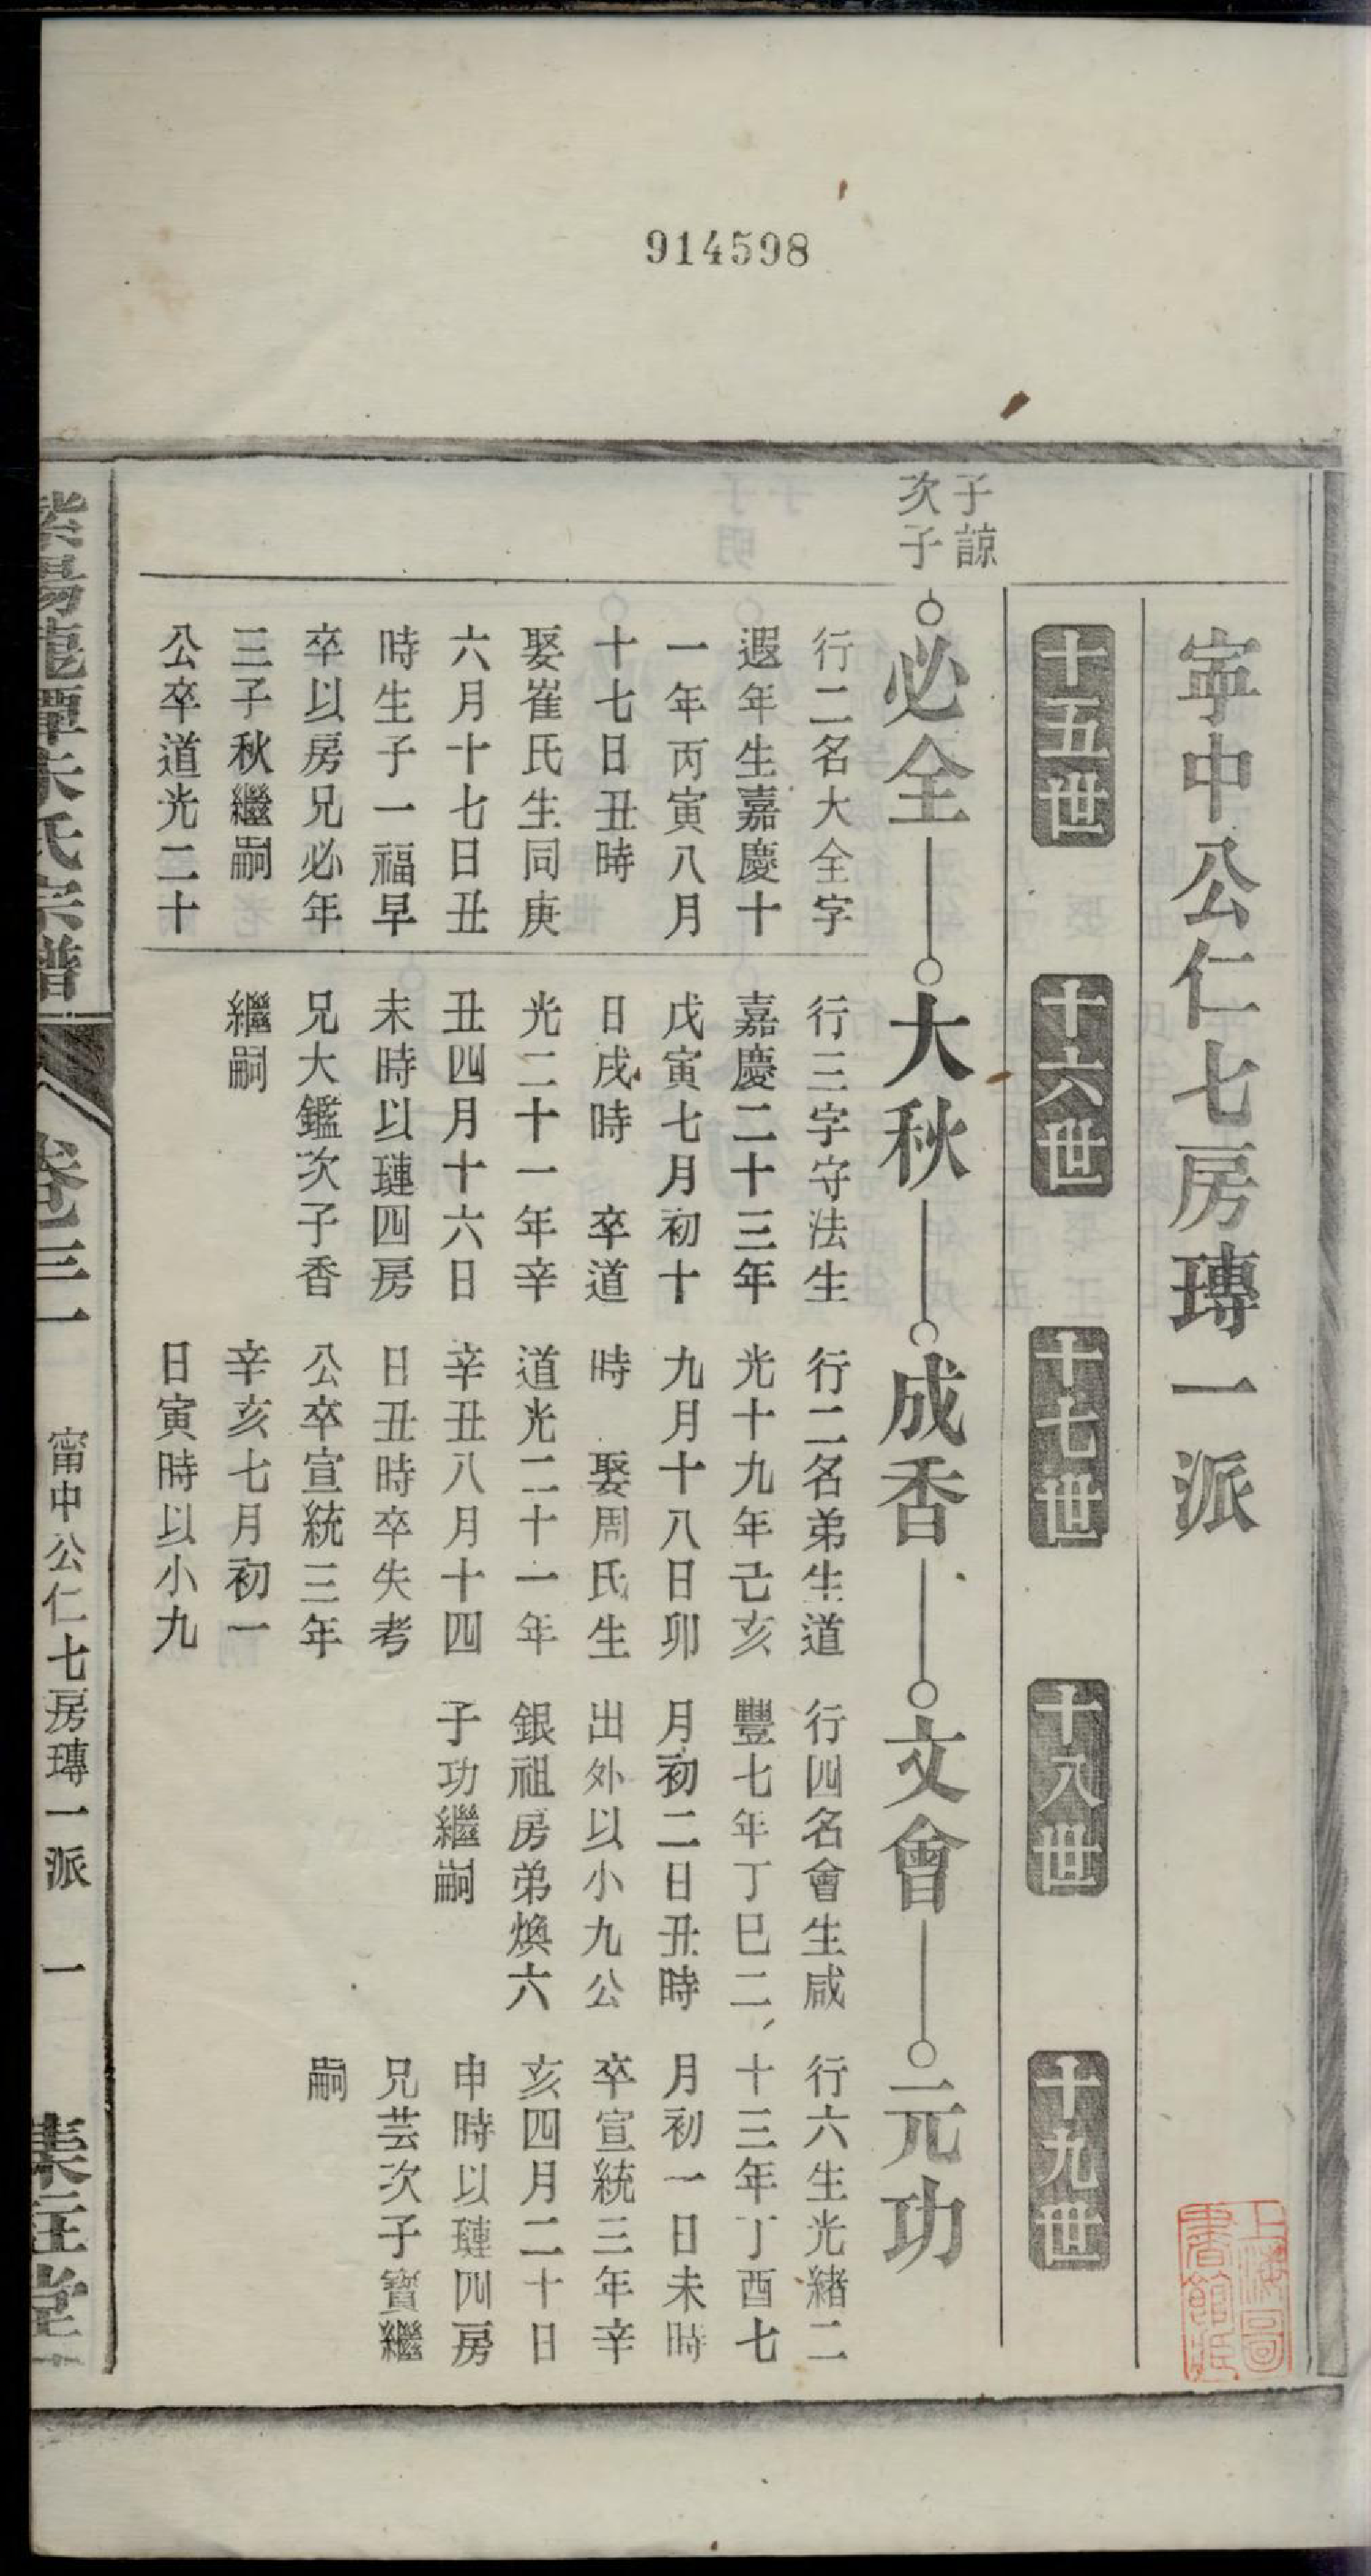 914598
甯中公仁七房瑼一派
十五世
十六世
十七世
十八世
十九世
子諒
次子
必全
大秋
成香
文會
元功
行二名大全字
遐年生嘉慶十
一年丙寅八月
十七日丑時
娶崔氏生同庚
六月十七日丑
時生子一福早
卒以房兄必年
三子秋繼嗣
公卒道光二十
行三字守法生
嘉慶二十三年
戊寅七月初十
日戌時 卒道
光二十一年辛
丑四月十六日
未時以璉四房
兄大鑑次子香
繼嗣
行二名弟生道
光十九年己亥
九月十八日卯
時 娶周氏生
道光二十一年
辛丑八月十四
日丑時卒失考
公卒宣統三年
辛亥七月初一
日寅時以小九
行四名會生咸
豐七年丁巳二
月初二日丑時
出外以小九公
銀祖房弟煥六
子功繼嗣
行六生光緒二
十三年丁酉七
月初一日未時
卒宣統三年辛
亥四月二十日
申時以璉四房
兄芸次子寶繼
嗣
紫陽龍潭朱氏宗譜
卷三一
甯中公仁七房瑼一派
一
上海圖
書館藏